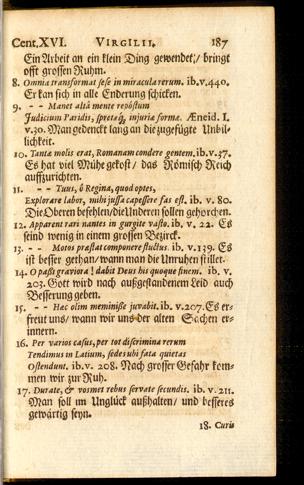 Cent. XVI. VIRGILII. 187
Ein Arbeit an ein klein Ding gewendet/ bringt
offt grossen Ruhm.
8. Omnia transformat sese in miracula rerum. ib. v. 440.
Er kan sich in alle Enderung schicken.
9. - - Manet altâ mente repôstum
Judicium Paridis, spretæq́; injuria formæ. Æneid. I.
v. 30. Man gedenckt lang an die zugefügte Unbil-
lichkeit.
10. Tantæ molis erat, Romanam condere gentem. ib. v. 37.
Es hat viel Mühe gekost/ das Römisch Reich
auffzurichten.
11. - - Tuus, ô Regina, quod optes,
Explorare labor, mihi jussa capessere fas est. ib. v. 80.
Die Oberen befehlen/ die Underen sollen gehorchen.
12. Apparent rari nantes in gurgite vasto. ib. v. 22. Es
seind wenig in einem grossen Bezirck.
13. - - Motos præstat componere fluctus. ib. v. 139. Es
ist besser gethan/ wann man die Unruhen stillet.
14. O passi graviora! dabit Deus his quoque finem. ib. v.
203. Gott wird nach außgestandenem Leid auch
Besserung geben.
15. - - Hæc olim meminisse juvabit. ib. v. 207. Es er-
freut uns/ wann wir uns der alten Sachen er-
innern.
16. Per varios casus, per tot discrimina rerum
Tendimus in Latium, sedes ubi fata quietas
Ostendunt. ib. v. 208. Nach grosser Gefahr kom-
men wir zur Ruh.
17. Durate, & vosmet rebus servate secundis. ib. v. 211.
Man soll im Unglück außhalten/ und besseres
gewärtig seyn.
18. Curis